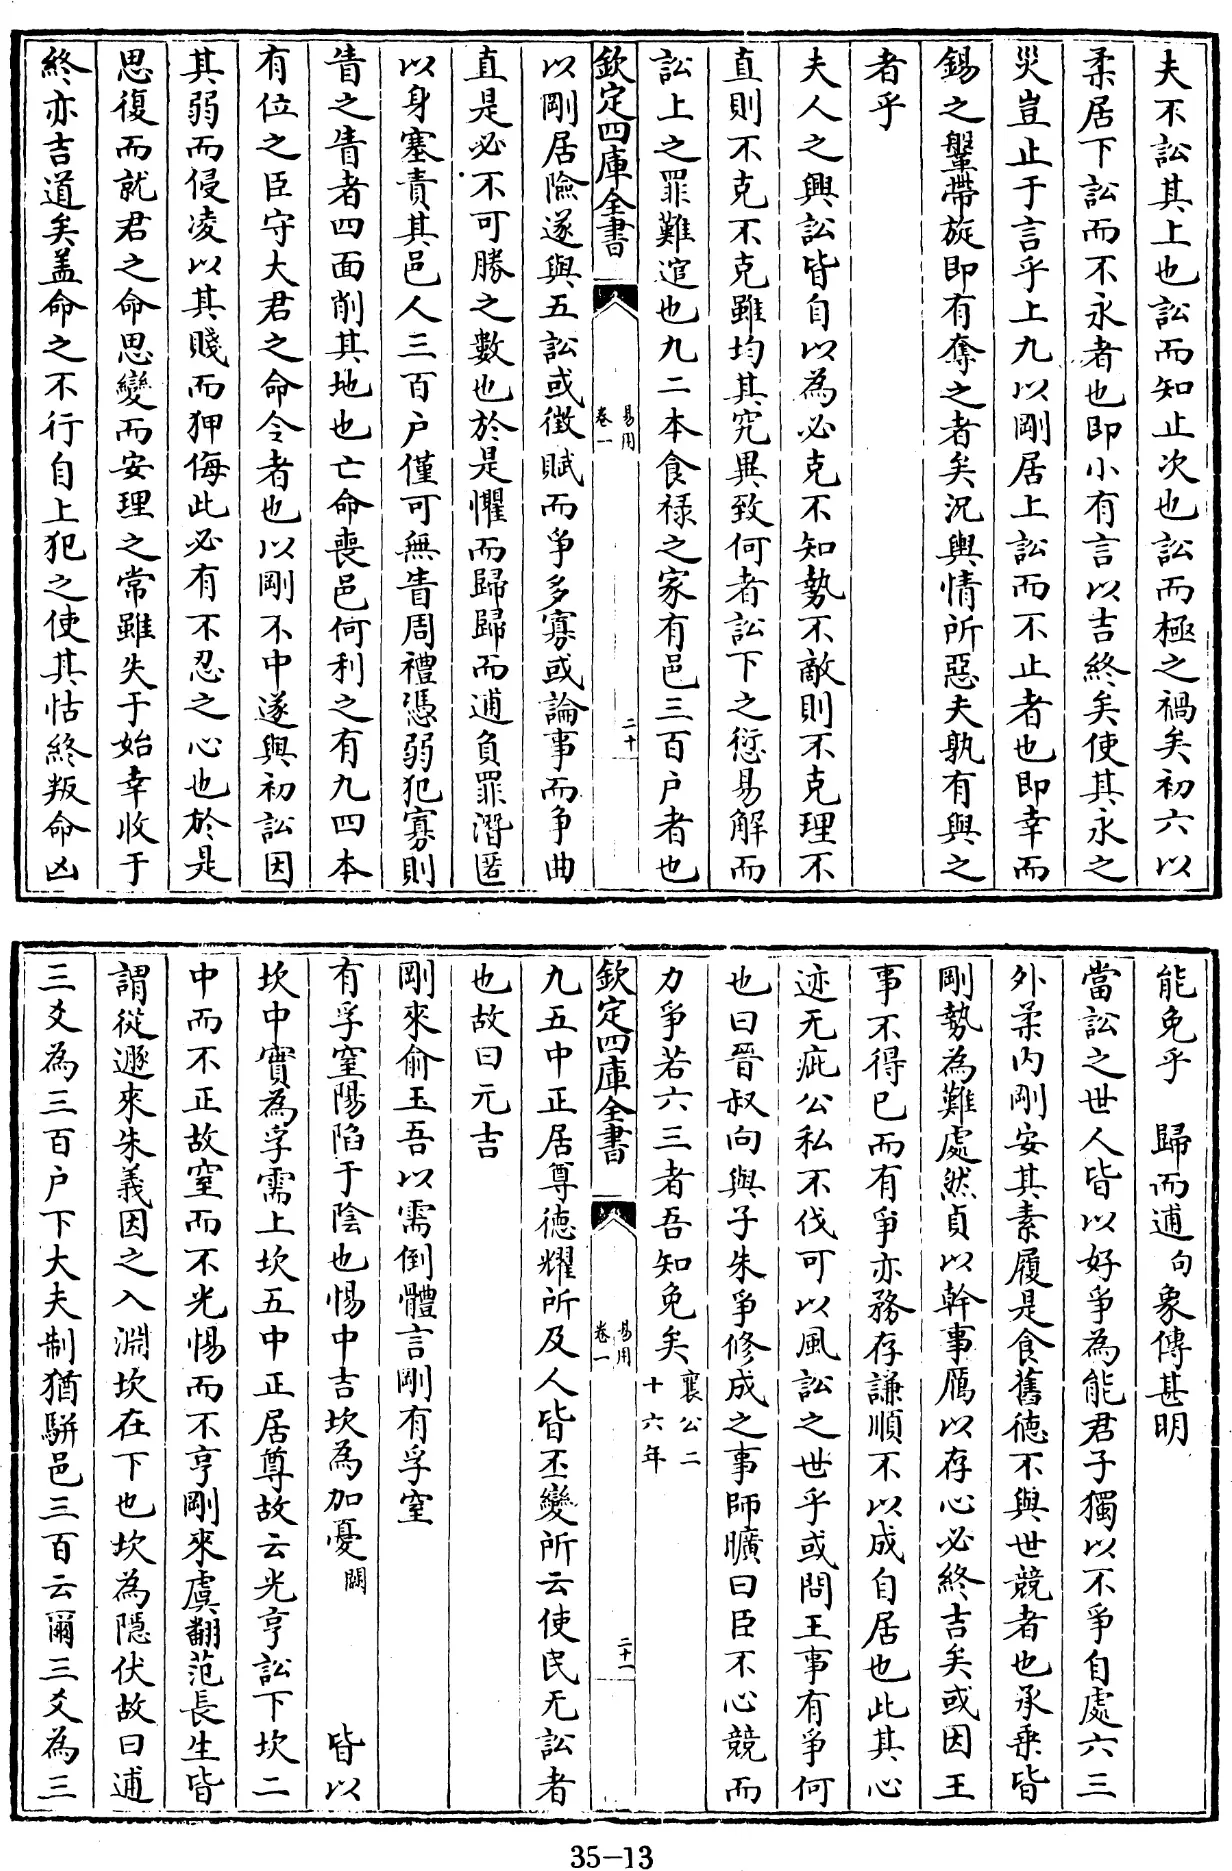 夫不訟其上也訟而知止次也訟而極之禍矣初六以
柔居下訟而不永者也即小有言以吉終矣使其永之
災豈止于言乎上九以剛居上訟而不止者也即幸而
錫之鞶帶旋即有奪之者矣況輿情所惡夫孰有與之
者乎
夫人之興訟皆自以為必克不知勢不敵則不克理不
直則不克不克雖均其究異致何者訟下之愆易解而
訟上之罪難逭也九二本食祿之家有邑三百户者也
欽定四庫全書
易用
卷一
二十
以剛居險遂與五訟或徴賦而爭多寡或論事而爭曲
直是必不可勝之數也於是懼而歸歸而逋負罪潛匿
以身塞責其邑人三百户僅可無眚周禮憑弱犯寡則
眚之眚者四面削其地也亡命喪邑何利之有九四本
有位之臣守大君之命令者也以剛不中遂與初訟因
其弱而侵凌以其賤而狎侮此必有不忍之心也於是
思復而就君之命思變而安理之常雖失于始幸收于
終亦吉道矣盖命之不行自上犯之使其怙終叛命凶
能免乎　歸而逋句象傳甚明
當訟之世人皆以好爭為能君子獨以不爭自處六三
外柔内剛安其素履是食舊德不與世競者也承乗皆
剛勢為難處然貞以幹事厲以存心必終吉矣或因王
事不得已而有爭亦務存謙順不以成自居也此其心
迹无疵公私不伐可以風訟之世乎或問王事有爭何
也曰晉叔向與子朱爭修成之事師曠曰臣不心競而
力爭若六三者吾知免矣襄公二十六年
欽定四庫全書
易用
卷一
二十一
九五中正居尊德耀所及人皆丕變所云使民无訟者
也故曰元吉
剛來俞玉吾以需倒體言剛有孚窒
有孚窒陽陷于陰也惕中吉坎為加憂闕　皆以
坎中實為孚需上坎五中正居尊故云光亨訟下坎二
中而不正故窒而不光惕而不亨剛來虞翻范長生皆
謂從遯來朱義因之入淵坎在下也坎為隱伏故曰逋
三爻為三百户下大夫制猶駢邑三百云爾三爻為三
35-13